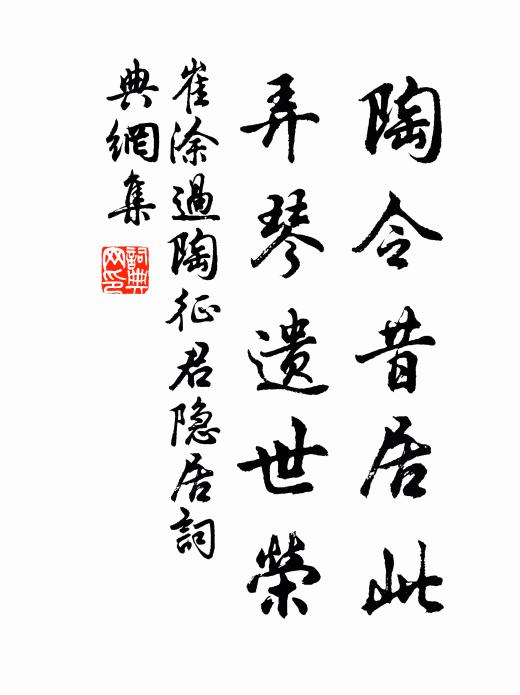 陶令昔居此
弄琴遗世榮
崔涂過陶征君隐居詞
典網集
詞典网印